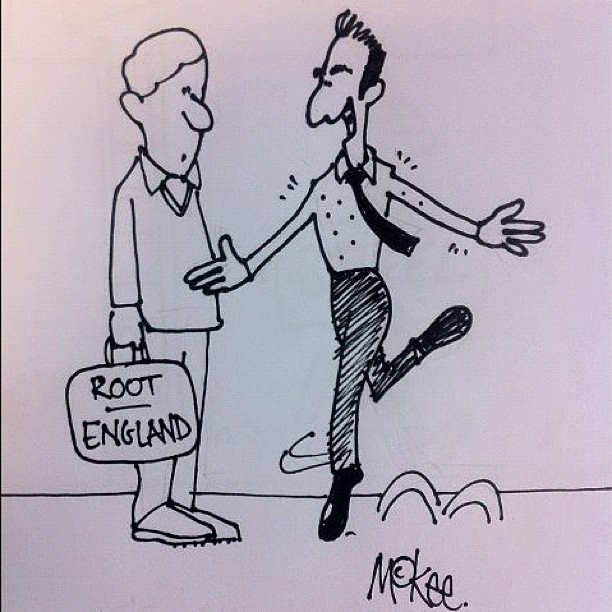 ROOT
ENGLAND
McKee.